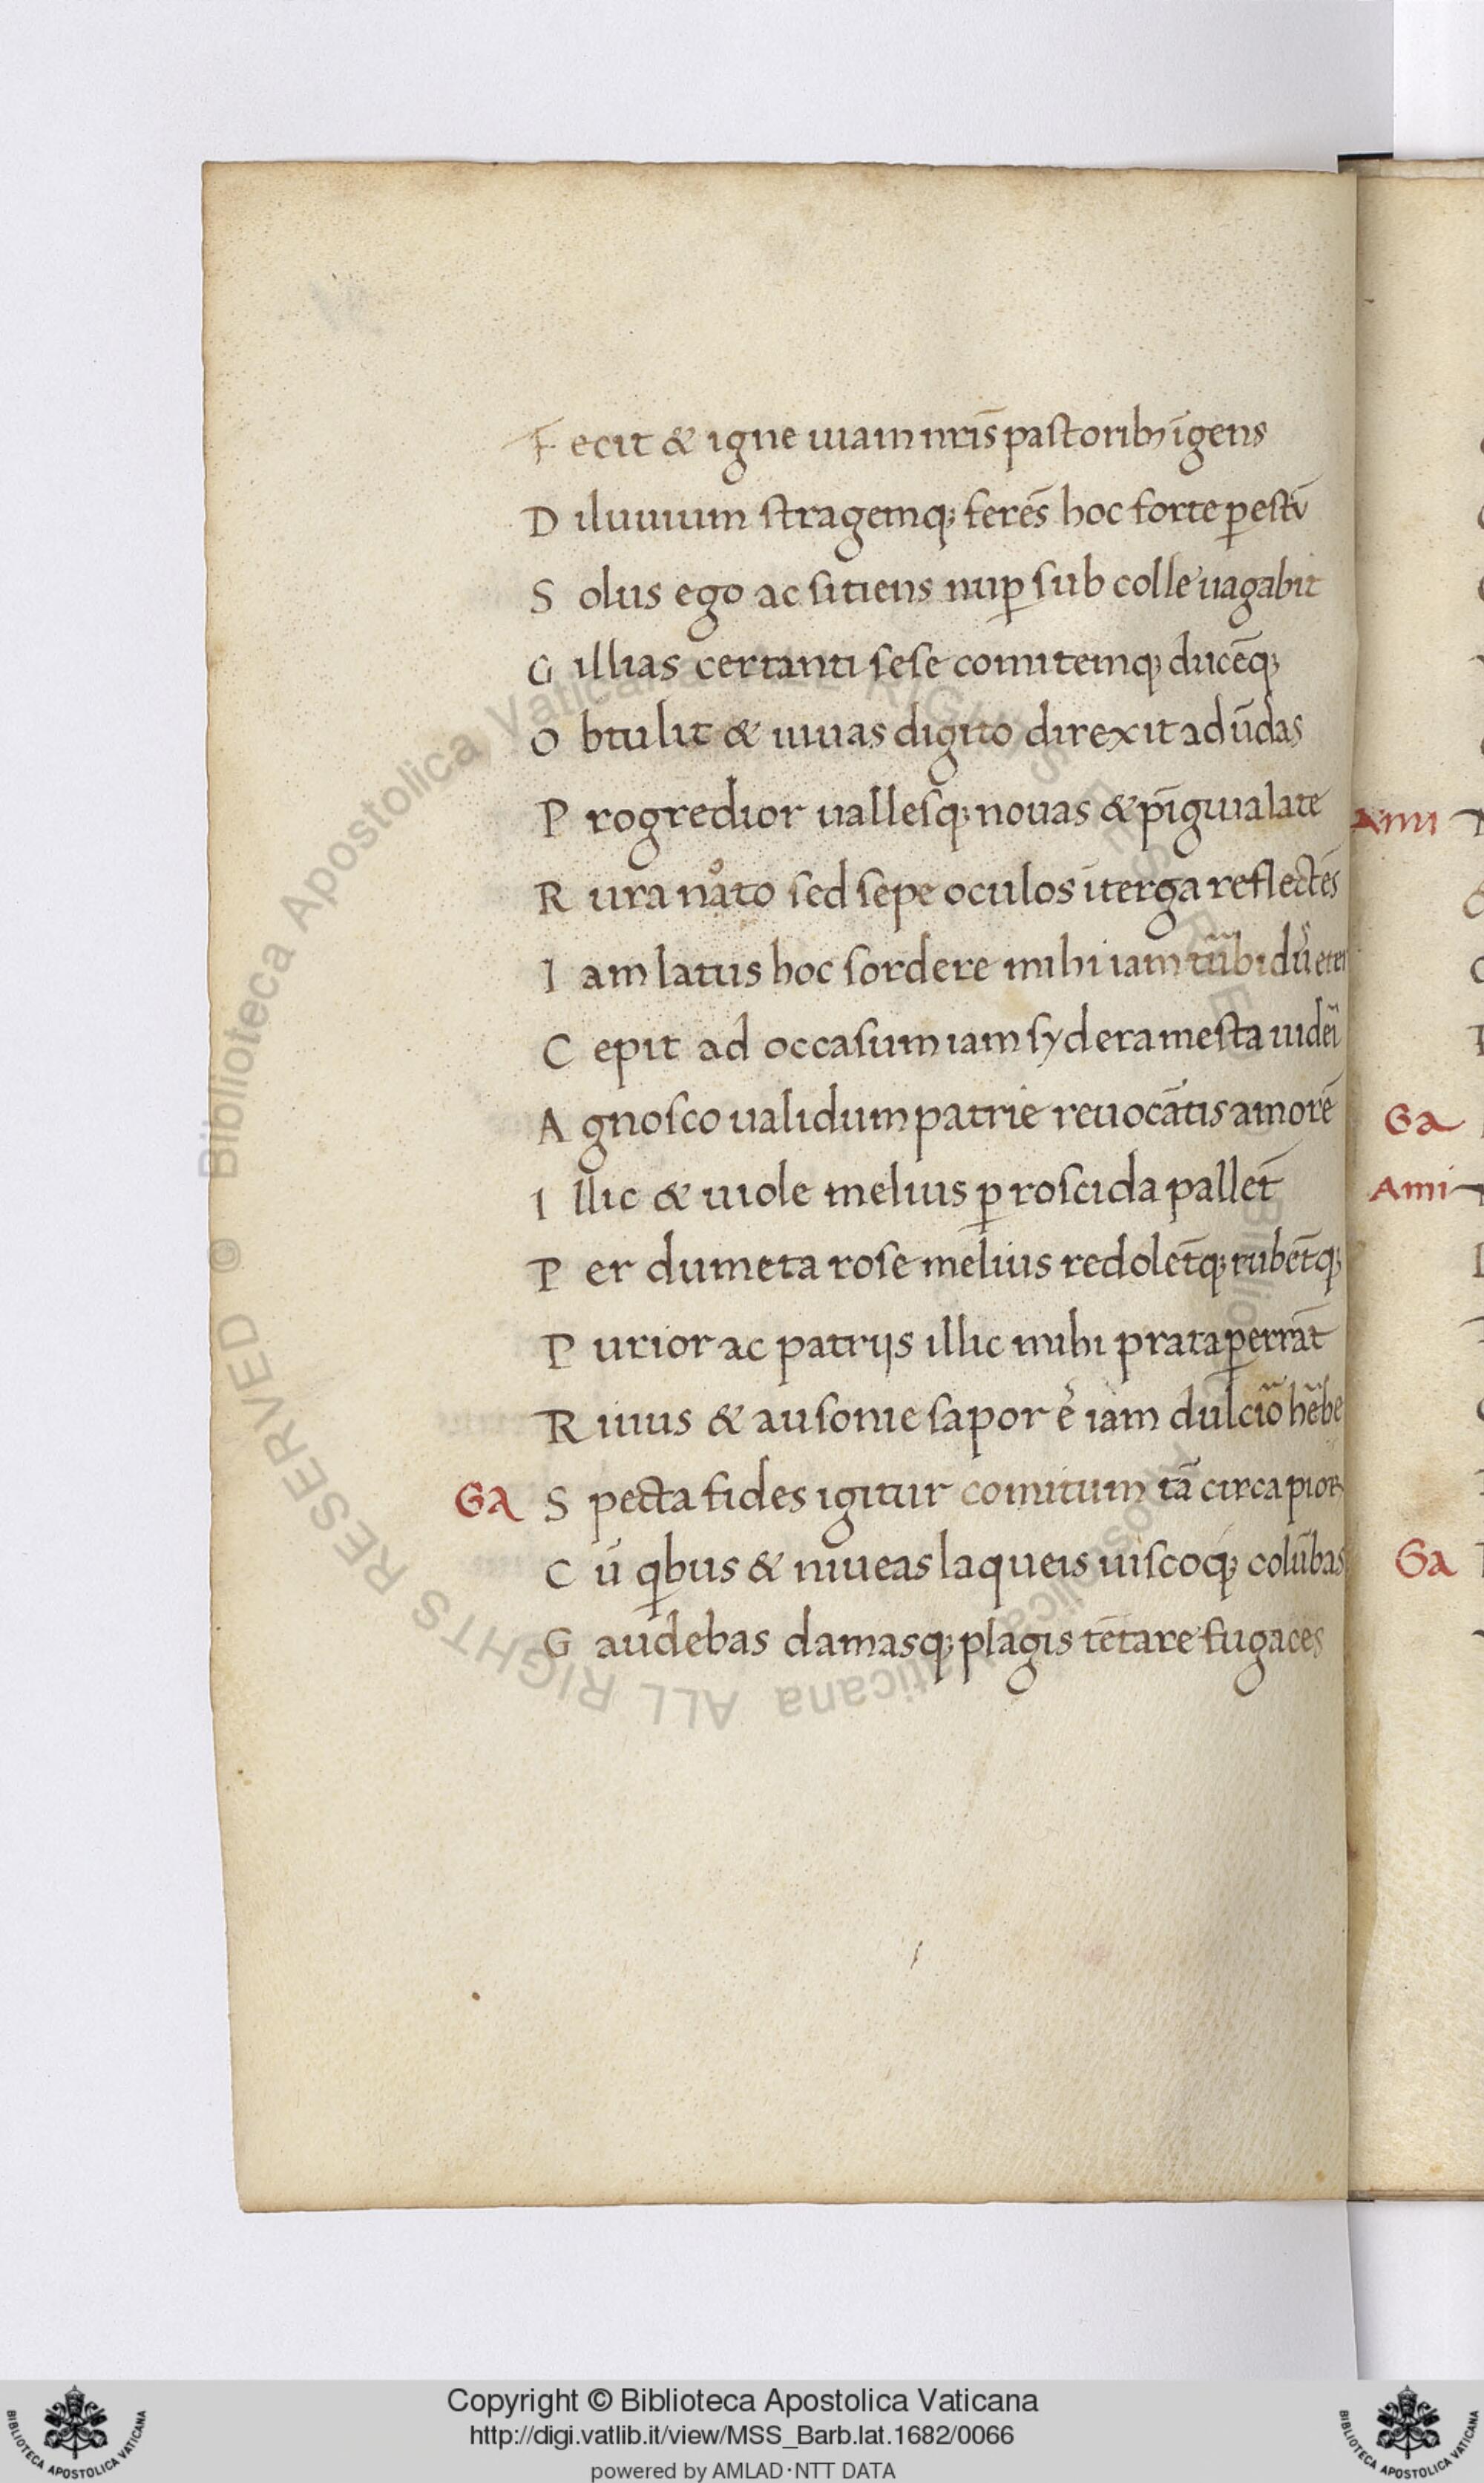 F ecit & igne uiam nr̃is pastorib; ĩgens
D iluuium stragemq; ferẽs hoc forte p̱ estũ
S olus ego ac sitiens nup̱ sub colle uagabar
G illias certanti sese comitemq; ducẽq;
O btulit & uiuas digito direxit ad ũdas
P rogredior uallesq; nouas & pĩguia late
R ura nᵒato sed sepe oculos ĩ terga reflectẽs
I am latus hoc sordere mihi iam tũbidũ eter
C epit ad occasum iam sydera mesta uideri
A gnosco ualidum patrie reuocãtis amorẽ
I llic & uiole melius p̱ roscida pallẽt
P er dumeta rose melius redolẽtq; rubẽtq;
P urior ac patrijs illic mihi prata p̱errãt
R iuus & ausonie sapor ẽ iam dulcio᷑ hẽbe
Ga S pecta fides igitur comitum tã circa pioꝝ
C ũ qⁱbus & niueas laqueis uiscoq; colũbas
G audebas damasq; plagis tẽtare fugaces
Ami
Ga
Ami
Ga
Copyright © Biblioteca Apostolica Vaticana
http://digi.vatlib.it/view/MSS_Barb.lat.1682/0066
powered by AMLAD·NTT DATA
BIBLIOTECA APOSTOLICA VATICANA
BIBLIOTECA APOSTOLICA VATICANA